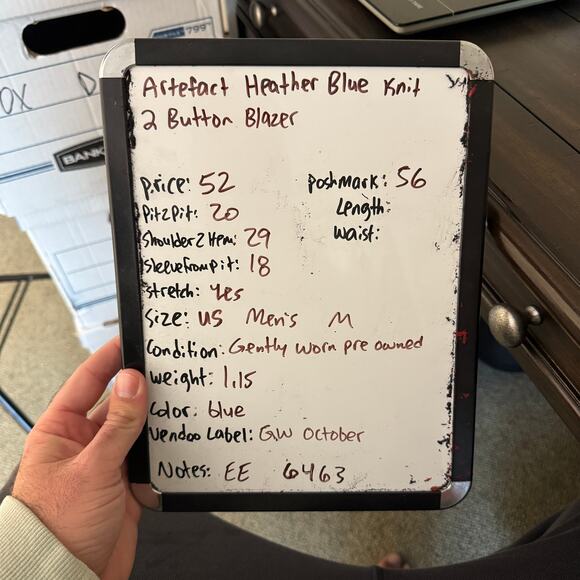 Artefact Heather Blue Knit
2 Button Blazer
price: 52
poshmark: 56
Pit2Pit: 20
Length:
Shoulder2Hem: 29
Waist:
SleeveFromPit: 18
Stretch: Yes
Size: US Men's M
Condition: Gently worn pre owned
weight: 1.15
Color: blue
Vendoo Label: GW October
Notes: EE 6463
OX
D
BANK
799